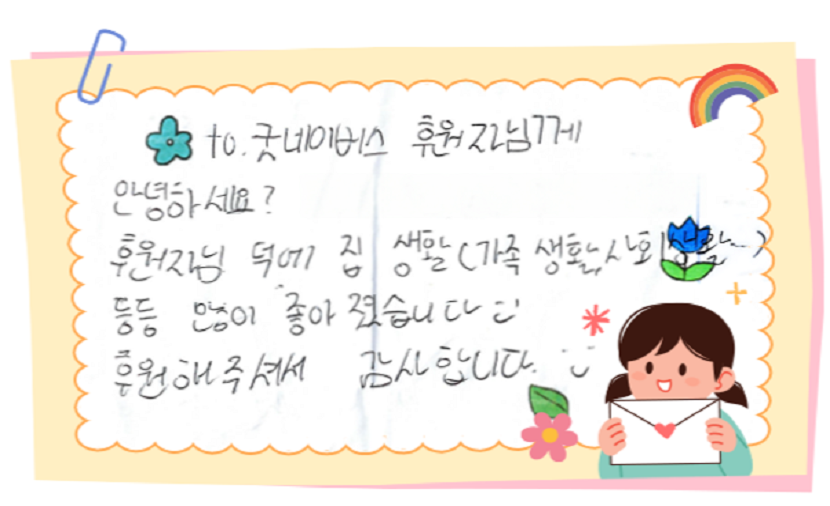 to. 굿네이버스 후원자님께
안녕하세요?
후원자님 덕에 집 생활(가족 생활, 사회생활...)
등등 많이 좋아졌습니다
후원해주셔서 감사합니다.